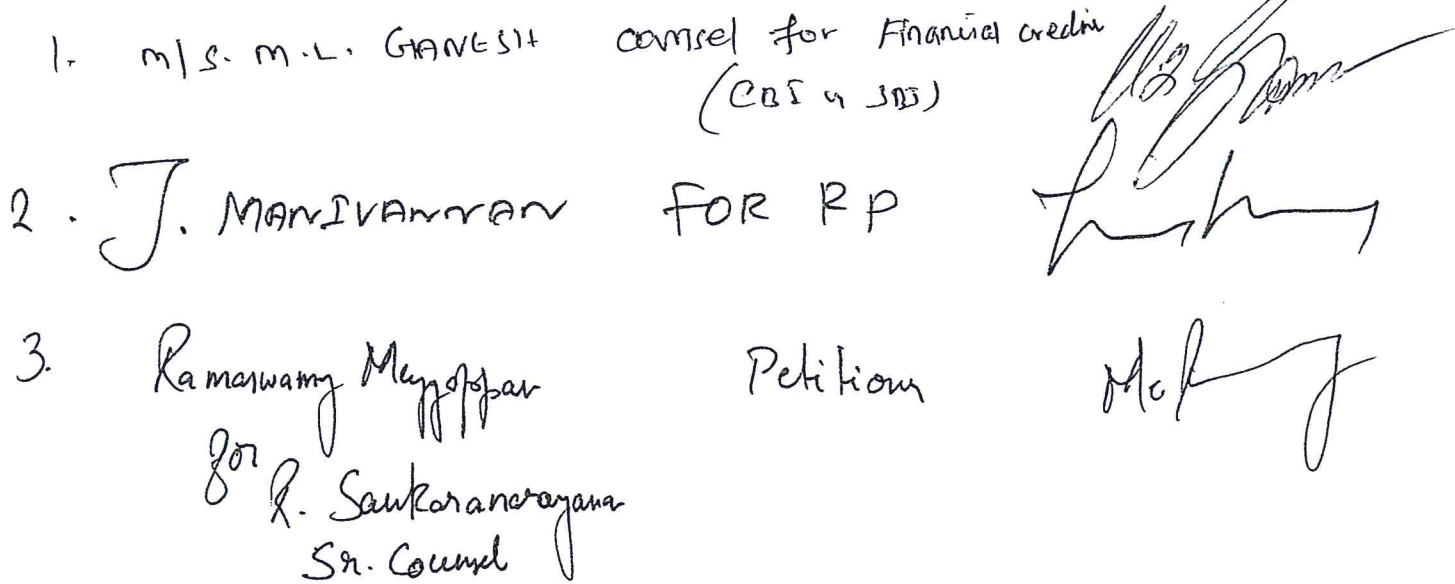 1. M/S. M.L. GANESH counsel for Financial Creditor
(CBI & SBI)
2. J. MANIVANNAN FOR RP
3. Ramaswamy Meyyappan Petitioner
for R. Sankaranarayana
Sr. Counsel